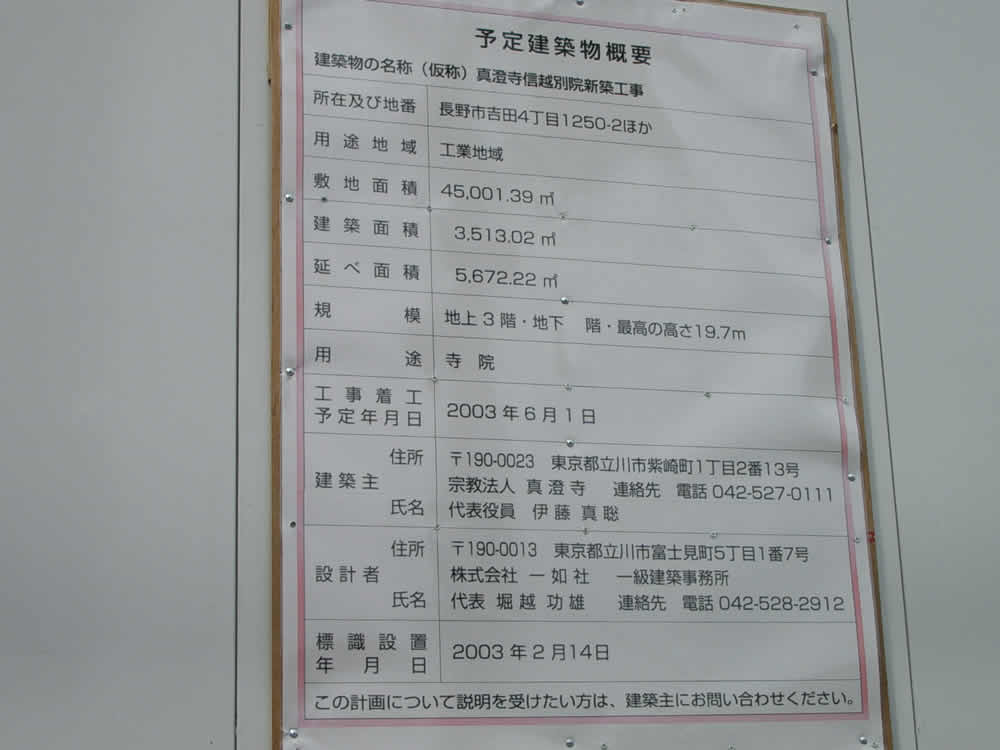 予定建築物概要
建築物の名称（仮称）真澄寺信越別院新築工事
所在及び地番 長野市吉田4丁目1250-2ほか
用途地域 工業地域
敷地面積 45,001.39 ㎡
建築面積 3,513.02 ㎡
延べ面積 5,672.22 ㎡
規模 地上 3 階・地下 階・最高の高さ19.7m
用途 寺院
工事着工
予定年月日 2003 年 6 月 1 日
住所 〒190-0023 東京都立川市紫崎町1丁目2番13号
建築主 宗教法人 真澄寺 連絡先 電話 042-527-0111
氏名 代表役員 伊藤真聡
住所 〒190-0013 東京都立川市富士見町5丁目1番7号
設計者 株式会社 一如社 一級建築事務所
氏名 代表 堀越功雄 連絡先 電話 042-528-2912
標識設置
年月日 2003 年 2 月 14日
この計画について説明を受けたい方は、建築主にお問い合わせください。